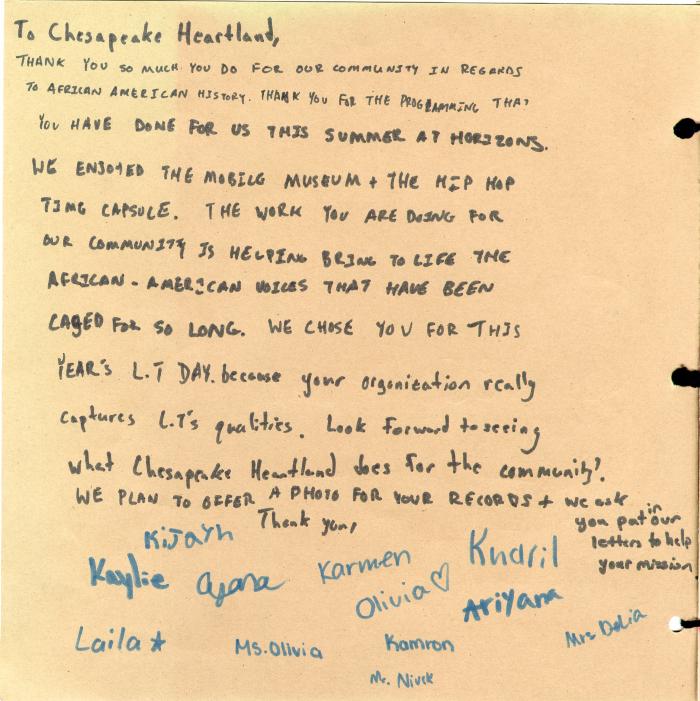 To Chesapeake Heartland,
THANK YOU SO MUCH YOU DO FOR OUR COMMUNITY IN REGARDS
TO AFRICAN AMERICAN HISTORY. THANK YOU FOR THE PROGRAMMING THAT
YOU HAVE DONE FOR US THIS SUMMER AT HORIZONS.
WE ENJOYED THE MOBILE MUSEUM + THE HIP HOP
TIME CAPSULE. THE WORK YOU ARE DOING FOR
OUR COMMUNITY IS HELPING BRING TO LIFE THE
AFRICAN-AMERICAN VOICES THAT HAVE BEEN
CAGED FOR SO LONG. WE CHOSE YOU FOR THIS
YEAR'S L.T DAY. because your organization really
captures L.T's qualities. Look forward to seeing
what Chesapeake Heartland does for the community!
WE PLAN TO OFFER A PHOTO FOR YOUR RECORDS + we ask
you put in our
letters to help
your mission
Thank you,
Kijayh
Kaylie Ayana Karmen Kharil
Olivia♡ AriYana
Laila★ Ms. Olivia Kamron Mrs Delia
Mr. Nivek